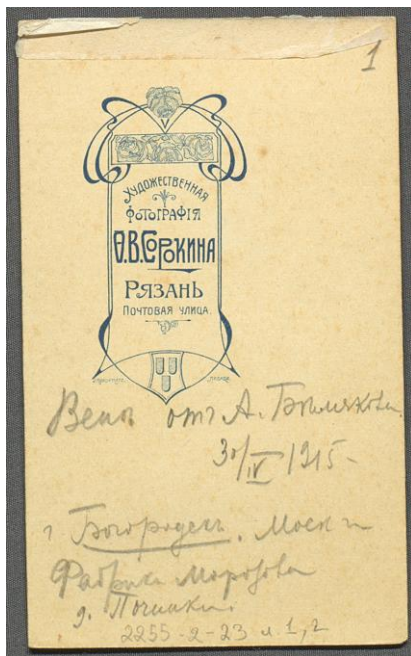 1
Художественная
фотографія
Ѳ.В.Сорокина
Рязань
Почтовая улица.
от А.
30/IV 1915-
г Богородск. Моск г
Фабрика Морозова
д. Починки.
2255-2-23 л. 1, 2